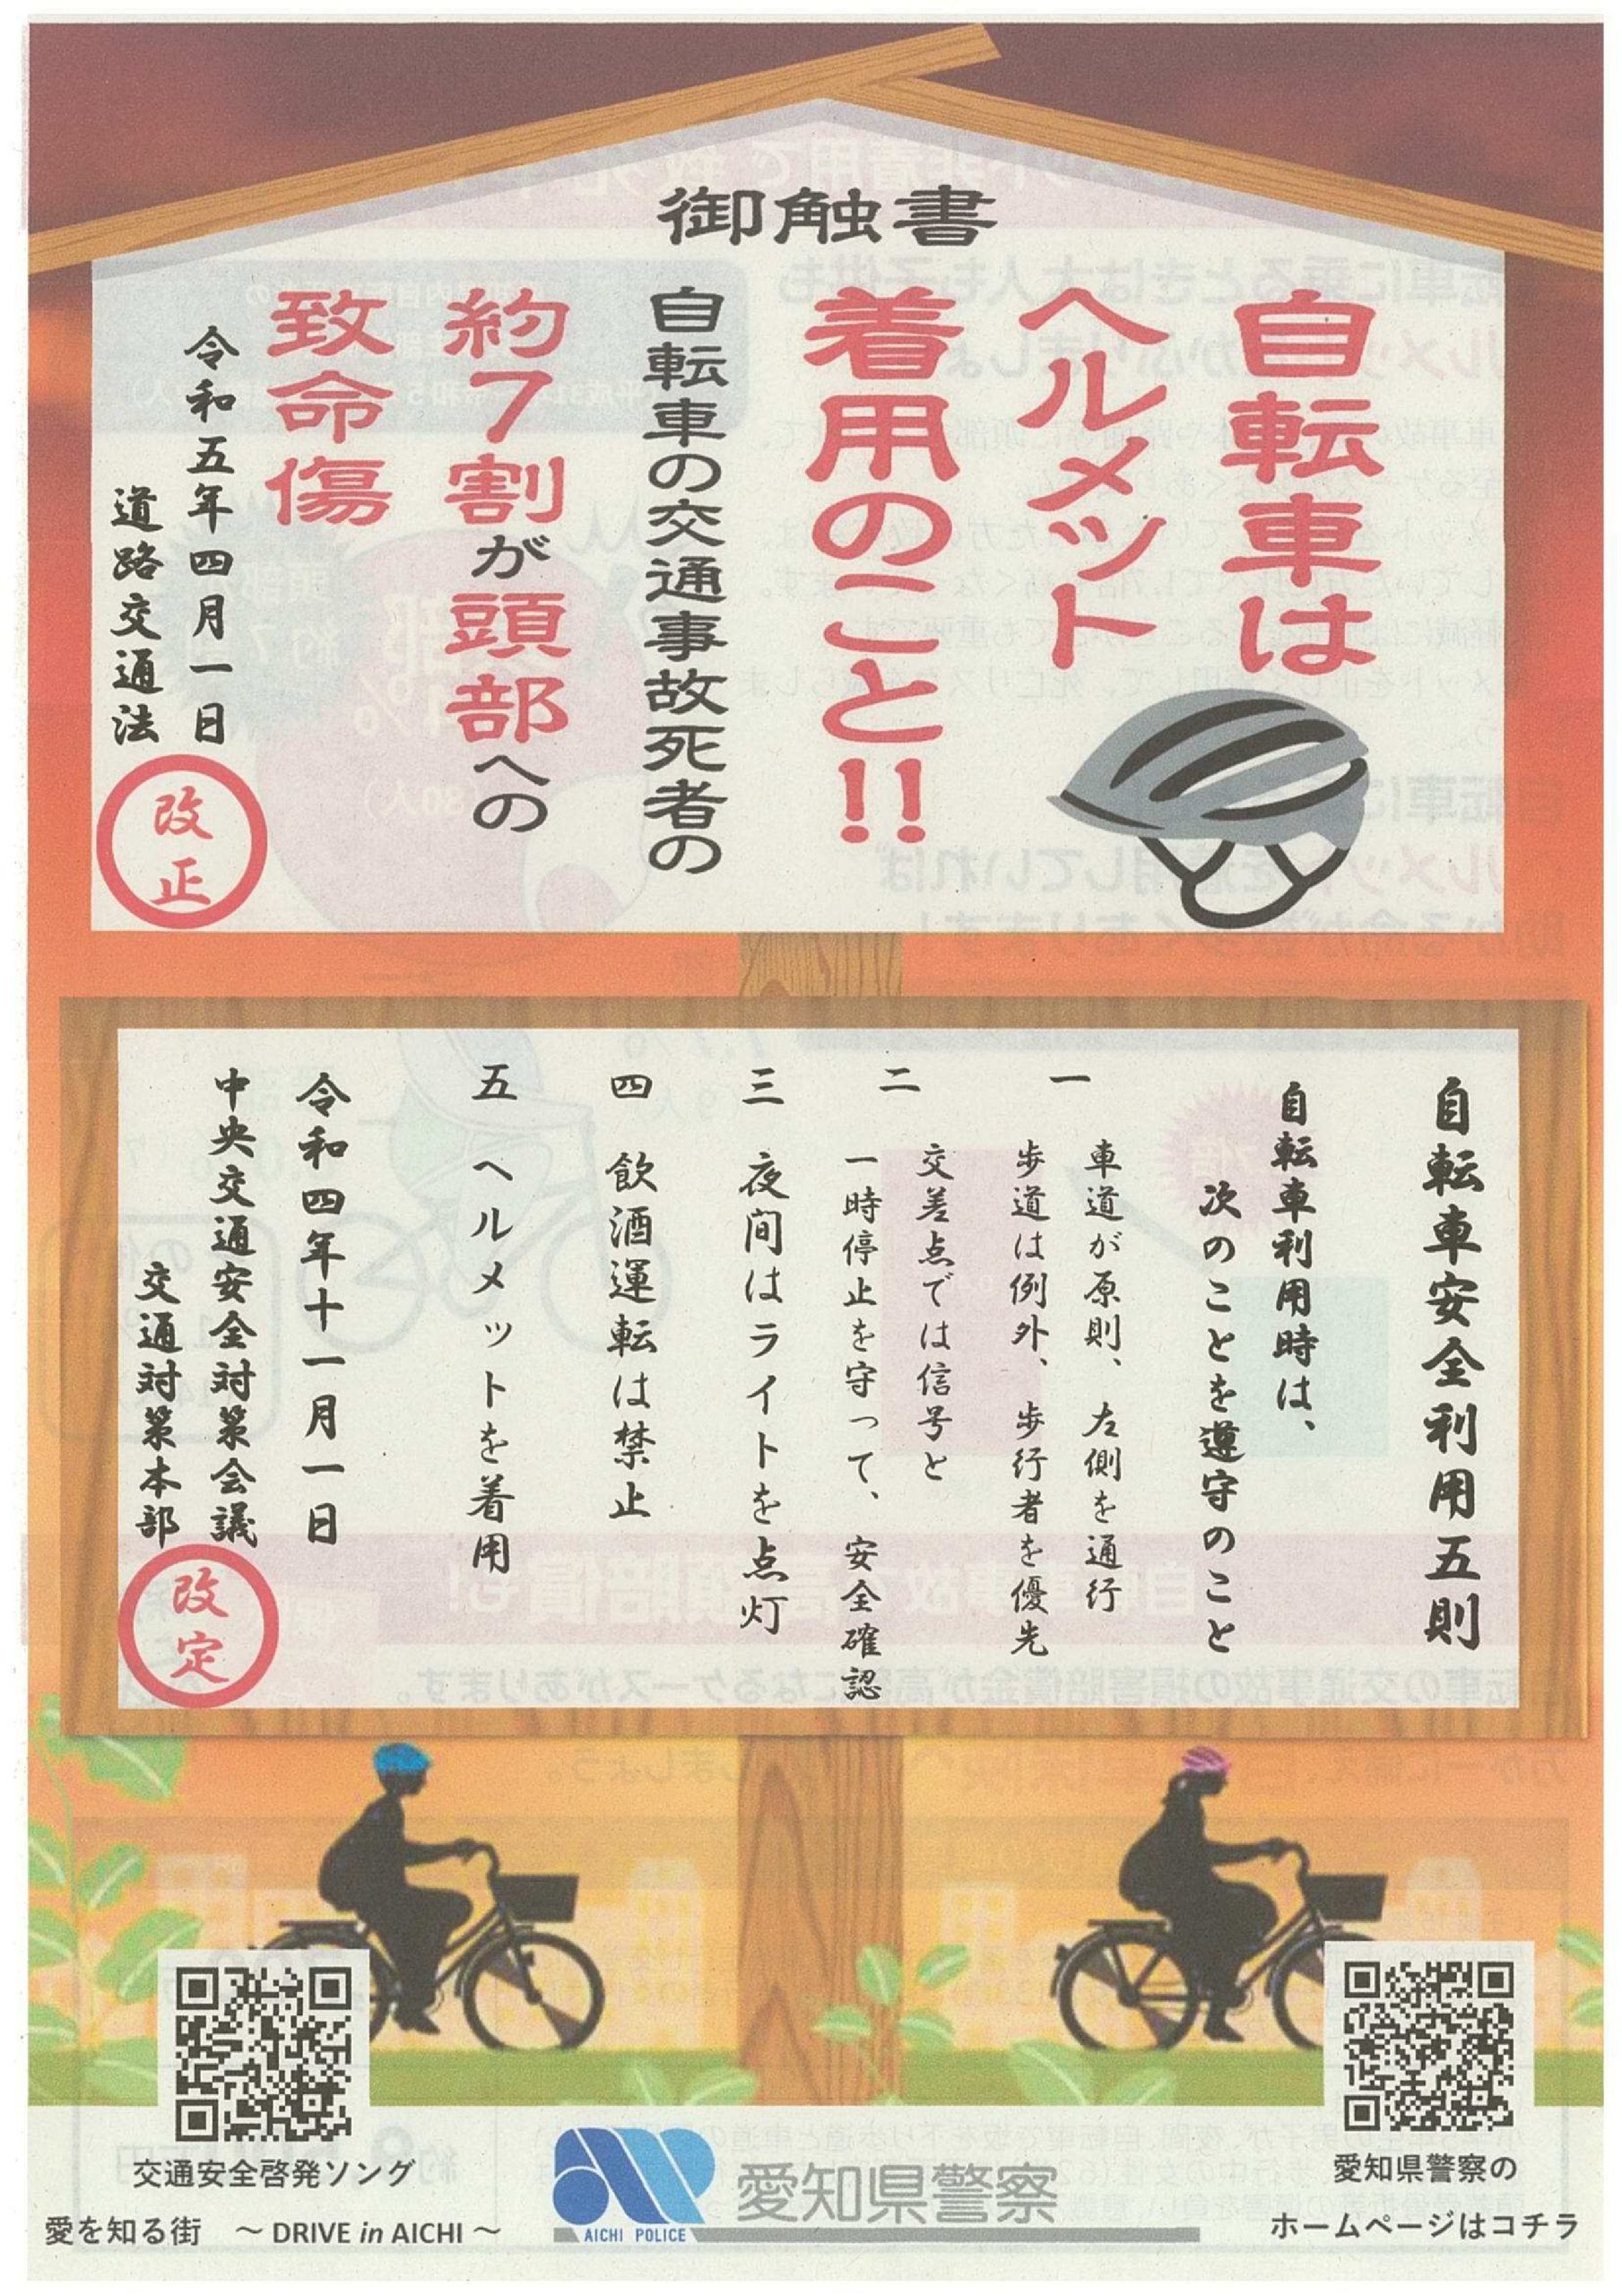 御触書
自転車は
ヘルメット
着用のこと!!
自転車の交通事故死者の
約7割が頭部への
致命傷
令和五年四月一日
道路交通法
改正
自転車安全利用五則
自転車利用時は、
次のことを遵守のこと
一 車道が原則、左側を通行
歩道は例外、歩行者を優先
二 交差点では信号と
一時停止を守って、安全確認
三 夜間はライトを点灯
四 飲酒運転は禁止
五 ヘルメットを着用
令和四年十一月一日
中央交通安全対策会議
交通対策本部
改定
交通安全啓発ソング
愛を知る街 ～DRIVE in AICHI～
AICHI POLICE
愛知県警察
愛知県警察の
ホームページはコチラ